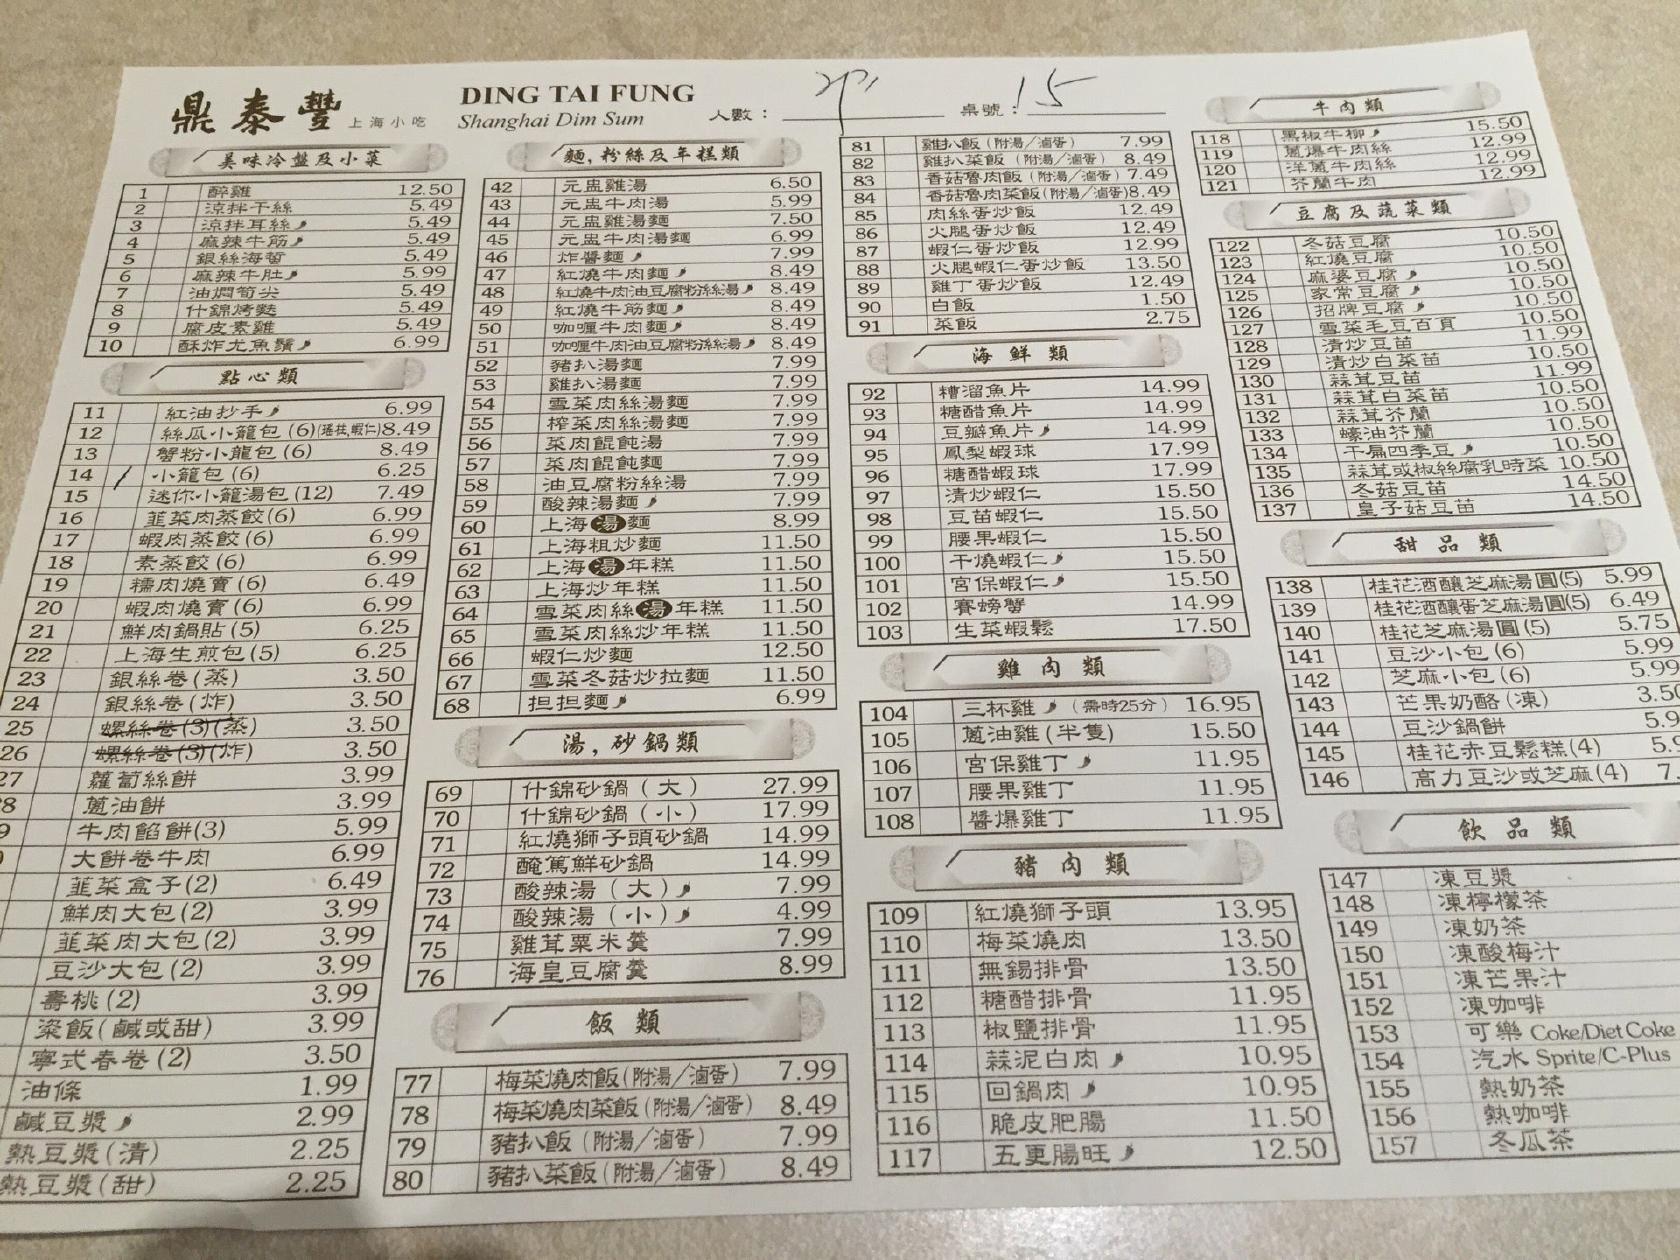 鼎泰豐 上海小吃
DING TAI FUNG
Shanghai Dim Sum
人數：
桌號： 15
美味冷盤及小菜
1 醉雞 12.50
2 涼拌干絲 5.49
3 涼拌耳絲 5.49
4 麻辣牛筋 5.49
5 銀絲海蜇 5.49
6 麻辣牛肚 5.99
7 油燜筍尖 5.49
8 什錦烤麩 5.49
9 腐皮素雞 5.49
10 酥炸尤魚鬚 6.99
點心類
11 紅油抄手 6.99
12 絲瓜小籠包 (6)(瑤柱,蝦仁) 8.49
13 蟹粉小籠包 (6) 8.49
14 小籠包 (6) 6.25
15 迷你小籠湯包 (12) 7.49
16 韮菜肉蒸餃 (6) 6.99
17 蝦肉蒸餃 (6) 6.99
18 素蒸餃 (6) 6.99
19 糯肉燒賣 (6) 6.49
20 蝦肉燒賣 (6) 6.99
21 鮮肉鍋貼 (5) 6.25
22 上海生煎包 (5) 6.25
23 銀絲卷 (蒸) 3.50
24 銀絲卷 (炸) 3.50
25 螺絲卷 (3) (蒸) 3.50
26 螺絲卷 (3) (炸) 3.50
27 蘿蔔絲餅 3.99
8 蔥油餅 3.99
9 牛肉餡餅 (3) 5.99
大餅卷牛肉 6.99
韮菜盒子 (2) 6.49
鮮肉大包 (2) 3.99
韮菜肉大包 (2) 3.99
豆沙大包 (2) 3.99
壽桃 (2) 3.99
粢飯 (鹹或甜) 3.99
寧式春卷 (2) 3.50
油條 1.99
鹹豆漿 2.99
熱豆漿 (清) 2.25
熱豆漿 (甜) 2.25
麵, 粉絲及年糕類
42 元盅雞湯 6.50
43 元盅牛肉湯 5.99
44 元盅雞湯麵 7.50
45 元盅牛肉湯麵 6.99
46 炸醬麵 7.99
47 紅燒牛肉麵 8.49
48 紅燒牛肉油豆腐粉絲湯 8.49
49 紅燒牛筋麵 8.49
50 咖喱牛肉麵 8.49
51 咖喱牛肉油豆腐粉絲湯 8.49
52 豬扒湯麵 7.99
53 雞扒湯麵 7.99
54 雪菜肉絲湯麵 7.99
55 榨菜肉絲湯麵 7.99
56 菜肉餛飩湯 7.99
57 菜肉餛飩麵 7.99
58 油豆腐粉絲湯 7.99
59 酸辣湯麵 7.99
60 上海湯麵 8.99
61 上海粗炒麵 11.50
62 上海湯年糕 11.50
63 上海炒年糕 11.50
64 雪菜肉絲湯年糕 11.50
65 雪菜肉絲炒年糕 11.50
66 蝦仁炒麵 12.50
67 雪菜冬菇炒拉麵 11.50
68 担担麵 6.99
湯, 砂鍋類
69 什錦砂鍋 (大) 27.99
70 什錦砂鍋 (小) 17.99
71 紅燒獅子頭砂鍋 14.99
72 醃篤鮮砂鍋 14.99
73 酸辣湯 (大) 7.99
74 酸辣湯 (小) 4.99
75 雞茸粟米羹 7.99
76 海皇豆腐羹 8.99
飯類
77 梅菜燒肉飯 (附湯/滷蛋) 7.99
78 梅菜燒肉菜飯 (附湯/滷蛋) 8.49
79 豬扒飯 (附湯/滷蛋) 7.99
80 豬扒菜飯 (附湯/滷蛋) 8.49
81 雞扒飯 (附湯/滷蛋) 7.99
82 雞扒菜飯 (附湯/滷蛋) 8.49
83 香菇魯肉飯 (附湯/滷蛋) 7.49
84 香菇魯肉菜飯 (附湯/滷蛋) 8.49
85 肉絲蛋炒飯 12.49
86 火腿蛋炒飯 12.49
87 蝦仁蛋炒飯 12.99
88 火腿蝦仁蛋炒飯 13.50
89 雞丁蛋炒飯 12.49
90 白飯 1.50
91 菜飯 2.75
海鮮類
92 糟溜魚片 14.99
93 糖醋魚片 14.99
94 豆瓣魚片 14.99
95 鳳梨蝦球 17.99
96 糖醋蝦球 17.99
97 清炒蝦仁 15.50
98 豆苗蝦仁 15.50
99 腰果蝦仁 15.50
100 干燒蝦仁 15.50
101 宮保蝦仁 15.50
102 賽螃蟹 14.99
103 生菜蝦鬆 17.50
雞肉類
104 三杯雞 (需時25分) 16.95
105 蔥油雞 (半隻) 15.50
106 宮保雞丁 11.95
107 腰果雞丁 11.95
108 醬爆雞丁 11.95
豬肉類
109 紅燒獅子頭 13.95
110 梅菜燒肉 13.50
111 無錫排骨 13.50
112 糖醋排骨 11.95
113 椒鹽排骨 11.95
114 蒜泥白肉 10.95
115 回鍋肉 10.95
116 脆皮肥腸 11.50
117 五更腸旺 12.50
牛肉類
118 黑椒牛柳 15.50
119 蔥爆牛肉絲 12.99
120 洋蔥牛肉絲 12.99
121 芥蘭牛肉 12.99
豆腐及蔬菜類
122 冬菇豆腐 10.50
123 紅燒豆腐 10.50
124 麻婆豆腐 10.50
125 家常豆腐 10.50
126 招牌豆腐 10.50
127 雪菜毛豆百頁 10.50
128 清炒豆苗 11.99
129 清炒白菜苗 10.50
130 蒜茸豆苗 11.99
131 蒜茸白菜苗 10.50
132 蒜茸芥蘭 10.50
133 蠔油芥蘭 10.50
134 干扁四季豆 10.50
135 蒜茸或椒絲腐乳時菜 10.50
136 冬菇豆苗 14.50
137 皇子菇豆苗 14.50
甜品類
138 桂花酒釀芝麻湯圓(5) 5.99
139 桂花酒釀蛋芝麻湯圓(5) 6.49
140 桂花芝麻湯圓 (5) 5.75
141 豆沙小包 (6) 5.99
142 芝麻小包 (6) 5.99
143 芒果奶酪 (凍) 3.50
144 豆沙鍋餅 5.9
145 桂花赤豆鬆糕 (4) 5.9
146 高力豆沙或芝麻 (4) 7.
飲品類
147 凍豆漿
148 凍檸檬茶
149 凍奶茶
150 凍酸梅汁
151 凍芒果汁
152 凍咖啡
153 可樂 Coke/Diet Coke
154 汽水 Sprite/C-Plus
155 熱奶茶
156 熱咖啡
157 冬瓜茶